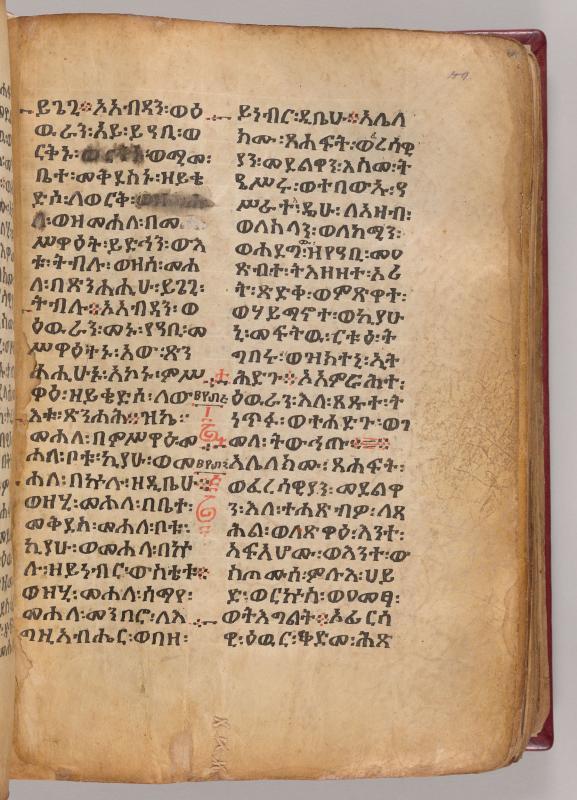 ይጌጊ፡፡ኦአብዳን፡ወዕ
ዉራን፡አይ፡ይዓቢ፡ወ
ርቅኑ፡ ወሚመ፡
ቤተ፡መቅደስኑ፡ዘይቄ
ድሶ፡ለወርቅ፡
ወዘመሐለ፡በመ
ሥዋዕት፡ይድኅን፡ውእ
ቱ፡ትብሉ፡ወዘሰ፡መሐ
ለ፡በጽንሐሒሁ፡ይጌጊ፡
ትብሉ፡፡ኦአብዳን፡ወ
ዕዉራን፡መኑ፡የዓቢ፡መ
ሥዋዕትኑ፡አው፡ጽን
ሐሒሁኑ፡አኮኑ፡ምሥ
ዋዕ፡ዘይቄድሶ፡ለው
እቱ፡ጽንሐሕ፡፡ዝኬ፡
መሐለ፡በምሥዋዕ፡መ
ሐለ፡ቦቱ፡ኪያሁ፡ወመ
ሐለ፡በኵሉ፡ዘዲቤሁ፡፡
ወዘሂ፡መሐለ፡በቤተ፡
መቅደስ፡መሐለ፡ቦቱ፡
ኪያሁ፡ወመሐለ፡በኵ
ሉ፡ዘይነብር፡ውስቴቱ፡፡
ወዘሂ፡መሐለ፡ሰማየ፡
መሐለ፡መንበሮ፡ለእ
ግዚአብሔር፡ወበዘ፡
ይነብር፡ዲቤሁ፡፡አሌለ
ክሙ፡ጸሐፍት፡ወፈረሳዊ
ያን፡መደልዋን፡እስመ፡ት
ዔሥሩ፡ወተበውኡ፡ዓ
ሥራተ፡ዴሁ፡ለአዘብ፡
ወለከላን፡ወለከሚን፡
ወሐደግ፡ዝየዓቢ፡መፅ
ጽብተ፡ትእዘዘተ፡አሪ
ት፡ጽድቅ፡ወምጽዋተ፡
ወሃይማኖተ፡ወኪያሁ
ኒ፡መፍትዉ፡ርቱዕ፡ት
ግበሩ፡ወዝክተኒ፡ኢት
ሕድጉ፡፡ኦአምሯሑተ፡
ዕዉራን፡እለ፡ጸጹተ፡ት
ነጥፉ፡ወተሐድጉ፡ወገ
መለ፡ትውኅጡ፡፡
አሌለክሙ፡ጸሐፍት፡
ወፈረሳዊያን፡መደልዋ
ን፡እለ፡ተሐጽብዎ፡ለጻ
ሕል፡ወለጽዋዕ፡እንተ፡
አፍአሆሙ፡ወእንተ፡ው
ስጦሙሰ፡ምሉእ፡ሀይ
ድ፡ወርኵሰ፡ወዐመፃ፡
ወትእግልት፡፡ኦፈርሳ
ዊ፡ዕዉር፡ቅድመ፡ሕጽ